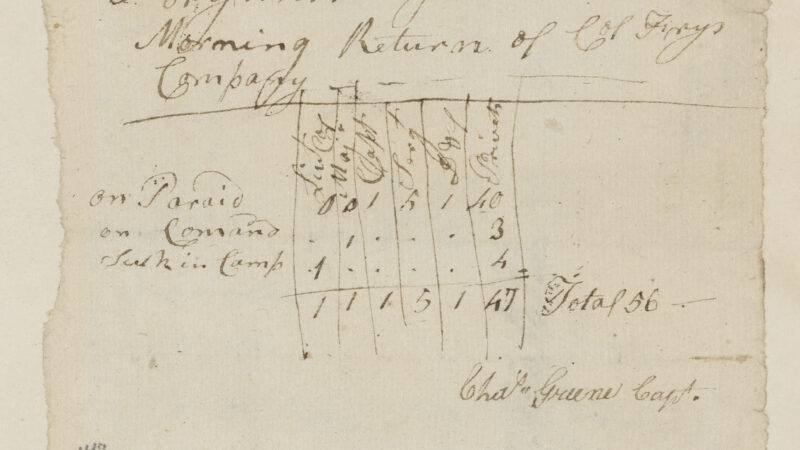 Morning Return of Col Frys
Company
Liut Col Majr Capt Serg D & f Privets
on Paraid 0 0 1 5 1 40
on Comand . 1 . . . 3
Sick in Camp 1 . . . . 4
1 1 1 5 1 47 Total 56
Chals Greene Capt.